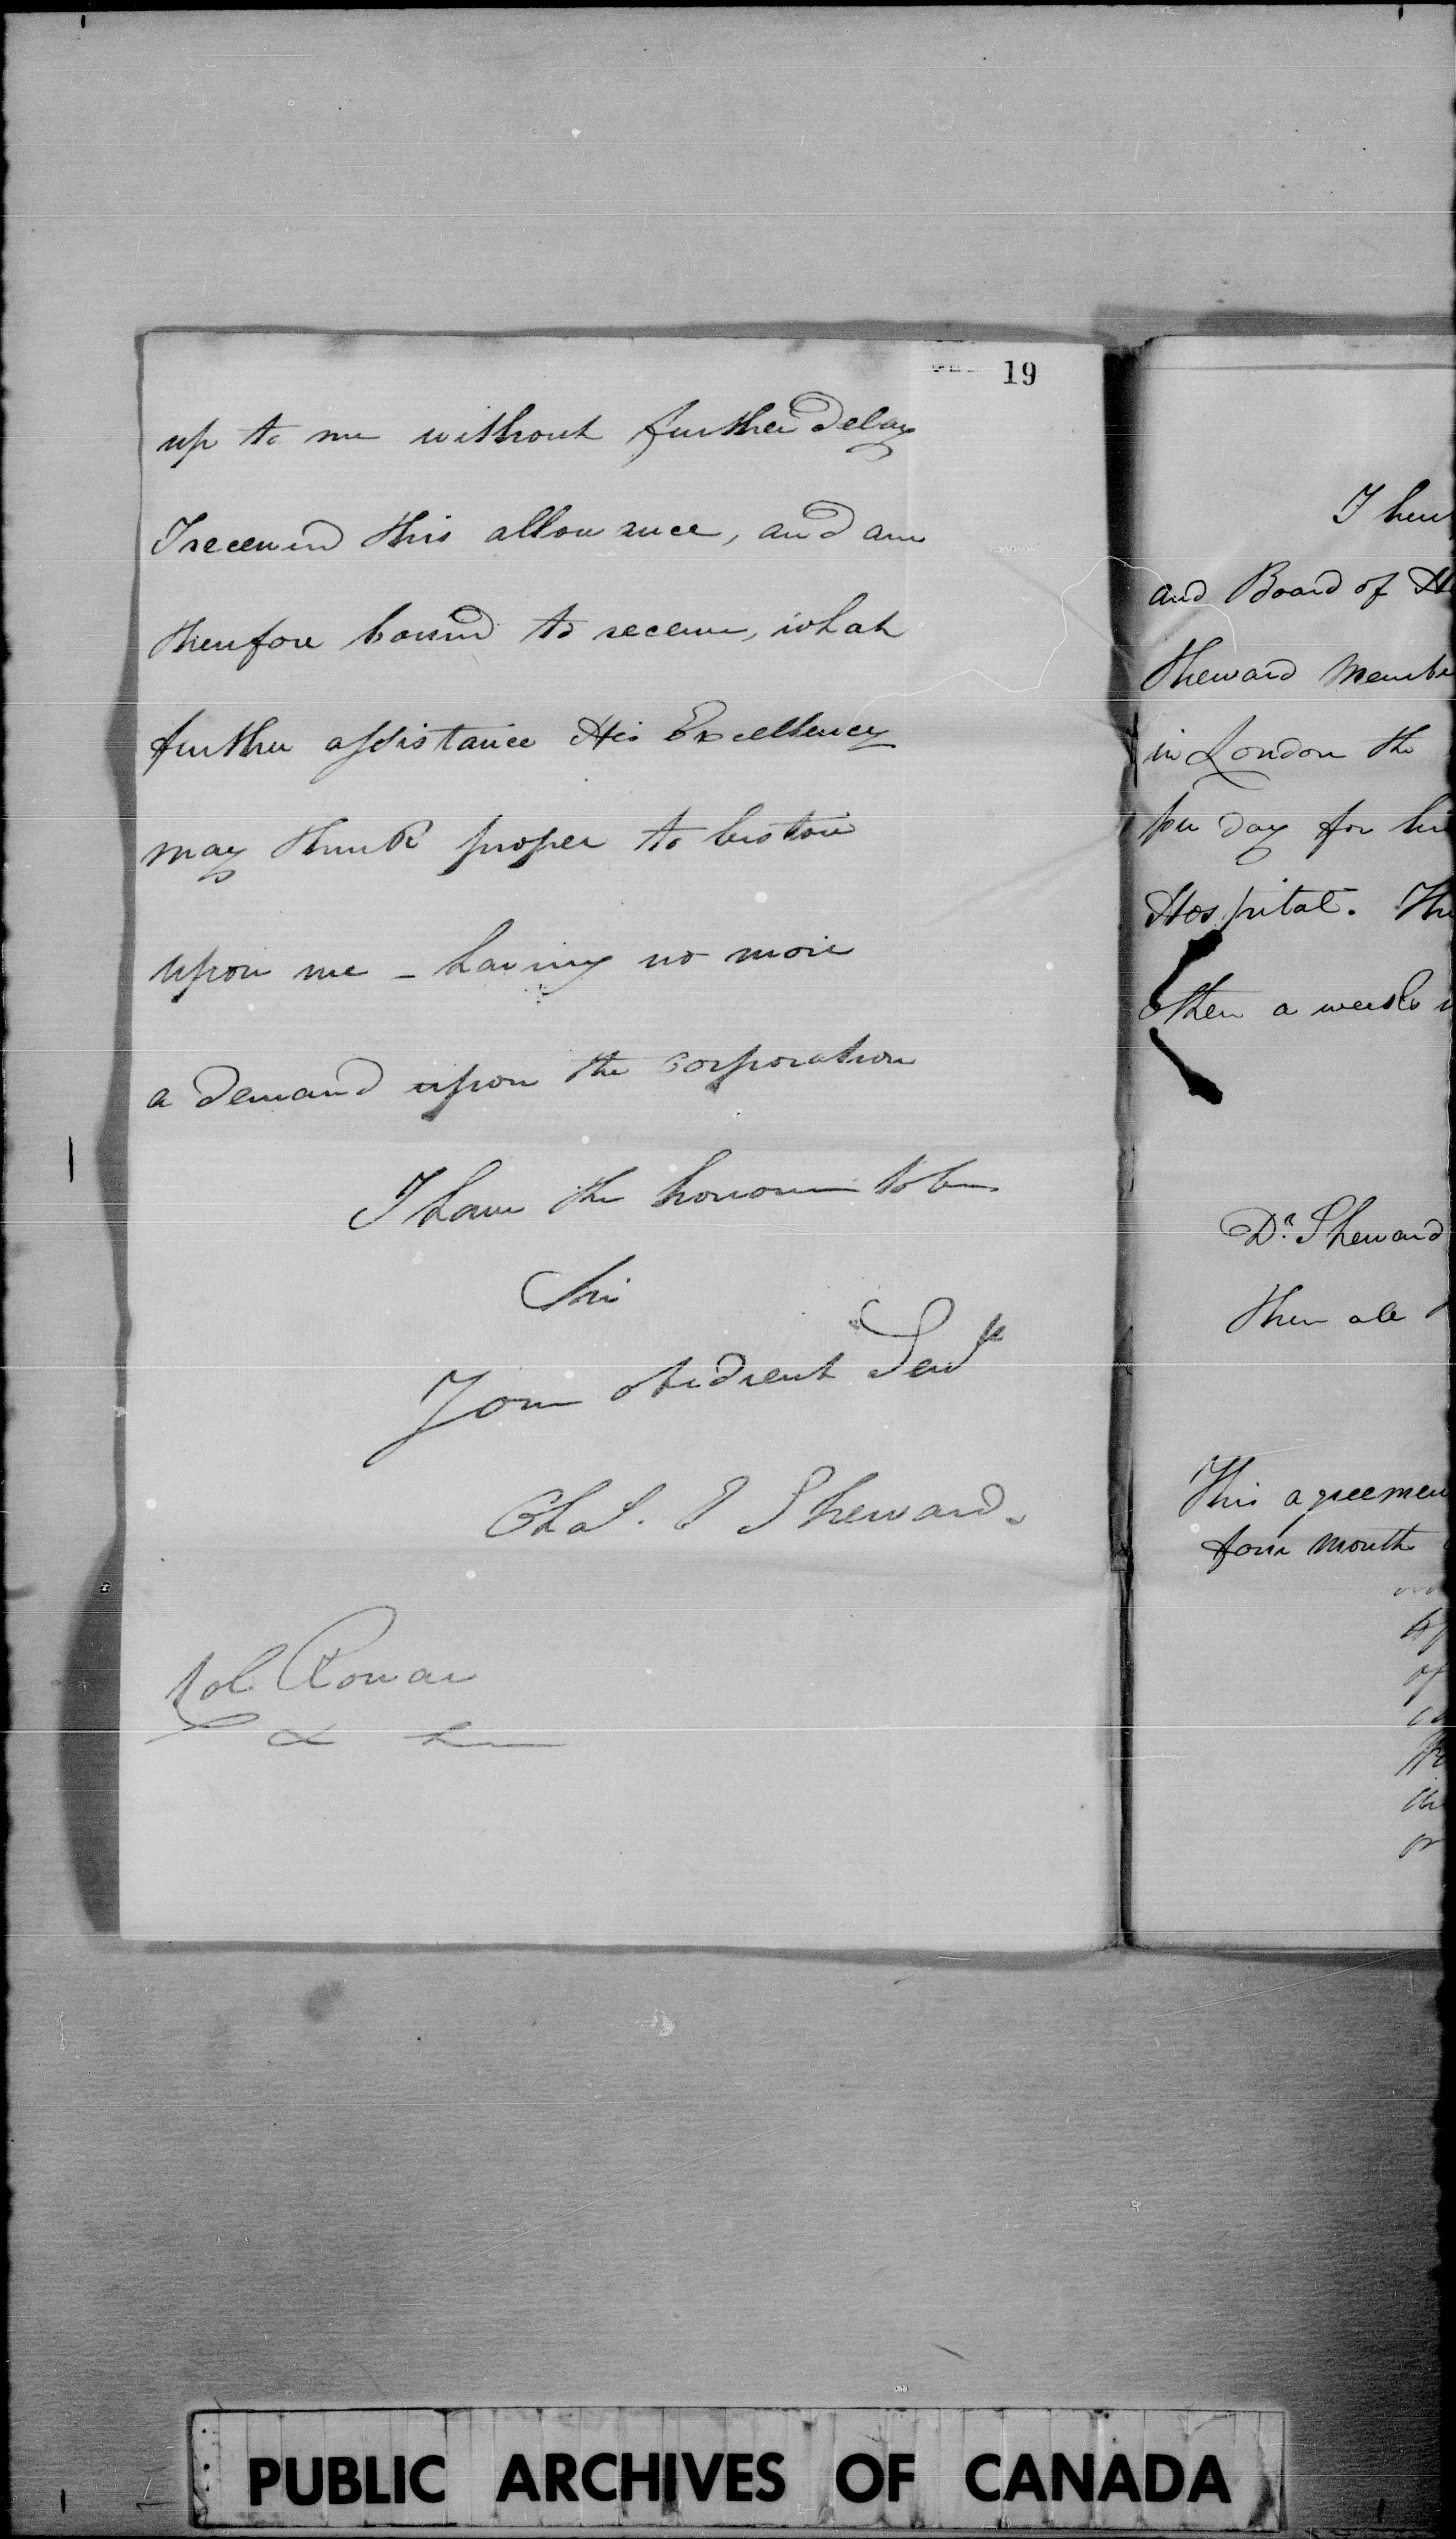 19
up to me without further delay
I received this allowance, and am
therefore bound to receive, what
further assistance His Excellency
may think proper to bestow
upon me - having no more
a demand upon the corporation
I have the honour to be
Sir
Your obedient Servt
Chas. J Sheward.
Col Rowan
&c &c
I her
and Board of H
Sheward Membe
in London the
per day for hi
Hospital. Th
then a week's
Dr. Sheward
then ale
This agreemen
four months
of
or
PUBLIC ARCHIVES OF CANADA